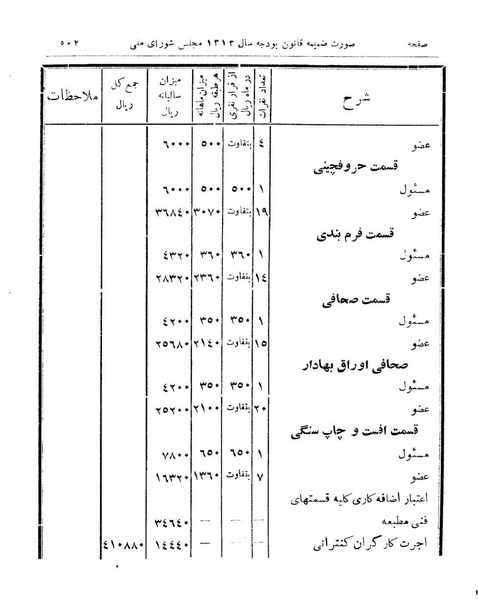 صفحه صورت ضمیمه قانون بودجه سال ۱۳۱۳ مجلس شورای ملی ۵۰۲
شرح تعداد نفرات از قرار نفری در ماه ریال میزان ماهانه هر طبقه ریال میزان سالیانه ریال جمع کل ریال ملاحظات
عضو ۴ بتفاوت ۵۰۰ ۶۰۰۰
قسمت حروفچینی
مسئول ۱ ۵۰۰ ۵۰۰ ۶۰۰۰
عضو ۱۹ بتفاوت ۳۰۷۰ ۳۶۸۴۰
قسمت فرم بندی
مسئول ۱ ۳۶۰ ۳۶۰ ۴۳۲۰
عضو ۱۴ بتفاوت ۲۳۶۰ ۲۸۳۲۰
قسمت صحافی
مسئول ۱ ۳۵۰ ۳۵۰ ۴۲۰۰
عضو ۱۵ بتفاوت ۲۱۴۰ ۲۵۶۸۰
صحافی اوراق بهادار
مسئول ۱ ۳۵۰ ۳۵۰ ۴۲۰۰
عضو ۲۰ بتفاوت ۲۱۰۰ ۲۵۲۰۰
قسمت افست و چاپ سنگی
مسئول ۱ ۶۵۰ ۶۵۰ ۷۸۰۰
عضو ۷ بتفاوت ۱۳۶۰ ۱۶۳۲۰
اعتبار اضافه کاری کلیه قسمتهای
فنی مطبعه — — ۳۴۶۴۰
اجرت کارگران کنتراتی — — ۱۴۴۴۰ ۴۱۰۸۸۰